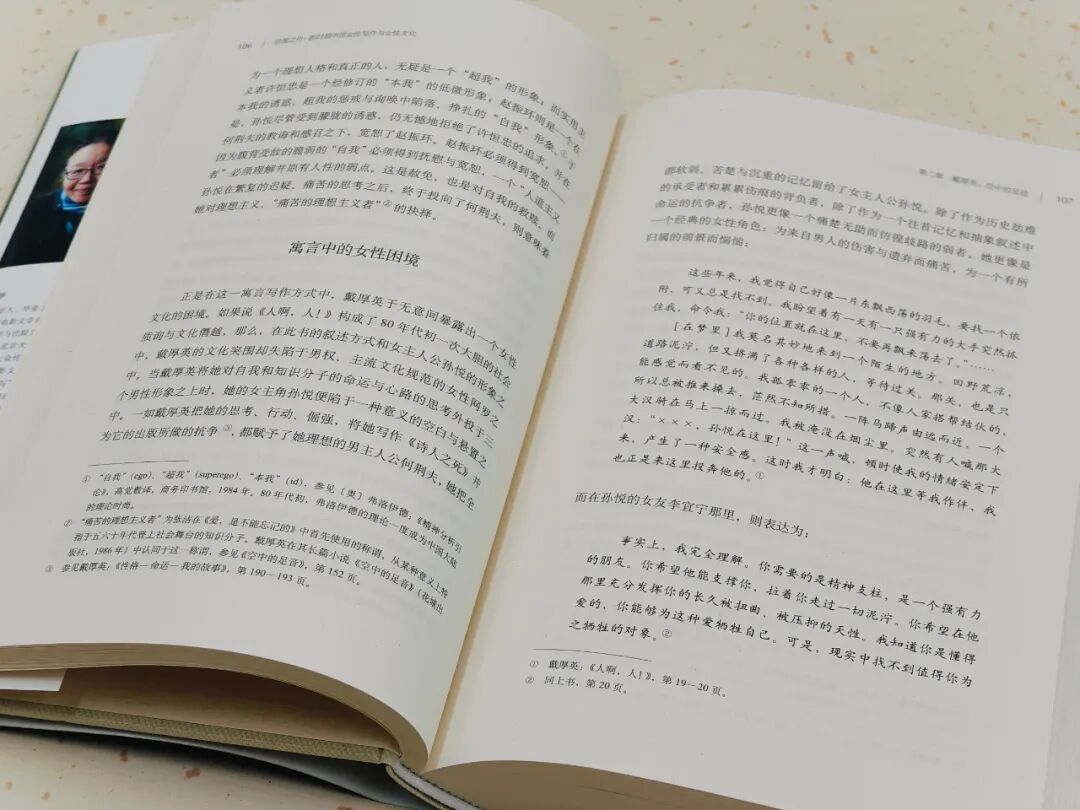 106
涉渡之舟：新时期中国女性写作与女性文化
为一个理想人格和真正的人，无疑是一个“超我”的形象；而实用主
义者许恒忠是一个经修订的“本我”的低微形象；赵振环则是一个在
本我的诱惑、超我的惩戒与询唤中陷落、挣扎的“自我”形象。①于
是，孙悦尽管受到朦胧的诱惑，仍无憾地拒绝了许恒忠的追求，并在
何荆夫的教诲和感召之下，宽恕了赵振环。赵振环必须得到宽恕——
因为腹背受敌的脆弱的“自我”必须得到抚慰与宽恕，一个“人道主义
者”必须理解并原有人性的弱点。这是赦免，也是对自我的救赎。而
孙悦在繁复的迟疑、痛苦的思考之后，终于投向了何荆夫，则意味着
她对理想主义、“痛苦的理想主义者”②的抉择。
寓言中的女性困境
正是在这一寓言写作方式中，戴厚英于无意间暴露出一个女性
文化的困境。如果说《人啊，人！》构成了80年代初一次大胆的社会
质询与文化僭越，那么，在此书的叙述方式和女主人公孙悦的形象之
中，戴厚英的文化突围却失陷于男权、主流文化规范的女性网罗之
中。当戴厚英将她对自我和知识分子的命运与心路的思考外投于三
个男性形象之上时，她的女主角孙悦便陷于一种意义的空白与悬置之
中。一如戴厚英把她的思考、行动、倔强，将她写作《诗人之死》并
为它的出版所做的抗争③，都赋予了她理想的男主人公何荆夫，她把全
① “自我”（ego）、“超我”（superego）、“本我”（id），参见〔奥〕弗洛伊德：《精神分析引
论》，高觉敷译，商务印书馆，1984年。80年代初，弗洛伊德的理论一度成为中国大陆
的理论时尚。
② “痛苦的理想主义者”为张洁在《爱，是不能忘记的》中首先使用的称谓，从某种意义上特
指于五六十年代登上社会舞台的知识分子。戴厚英在其长篇小说《空中的足音》（花城出
版社，1986年）中认同于这一称谓，参见《空中的足音》，第152页。
③ 参见戴厚英：《性格—命运—我的故事》，第190—193页。
第二章 戴厚英：空中的足迹
107
部软弱、苦楚与沉重的记忆留给了女主人公孙悦。除了作为历史劫难
的承受者和累累伤痕的背负者，除了作为一个往昔记忆和抽象叙述中
命运的抗争者，孙悦更像一个痛楚无助而彷徨歧路的弱者。她更像是
一个经典的女性角色：为来自男人的伤害与遗弃而痛苦，为一个有所
归属的前景而惴惴：
这些年来，我觉得自己好像一片东飘西荡的羽毛，要找一个依
附，可又总是找不到。我盼望着有一天有一只强有力的大手突然抓
住我，命令我：“你的位置就在这里，不要再飘来荡去了。”……
［在梦里］我莫名其妙地来到一个陌生的地方。田野荒凉，
道路泥泞，但又挤满了各种各样的人，等待过关。那关，也是只
能感觉而看不见的。我孤零零的一个人，不像人家搭帮结伙的，
所以总被推来搡去，茫然不知所措。一阵马蹄声由远而近，一个
大汉骑在马上一掠而过。我被淹没在烟尘里。突然有人喊那大
汉：“×××，孙悦在这里！”这一声喊，顿时使我的情绪安定下
来，产生了一种安全感。这时我才明白：他在这里等我作伴，我
也正是来这里投奔他的。①
而在孙悦的女友李宜宁那里，则表达为：
事实上，我完全理解。你需要的是精神支柱，是一个强有力
的朋友。你希望他能支撑你，拉着你走过一切泥泞。你希望在他
那里充分发挥你的长久被扭曲、被压抑的天性。我知道你是懂得
爱的，你能够为这种爱牺牲自己。可是，现实中找不到值得你为
之牺牲的对象。②
① 戴厚英：《人啊，人！》，第19—20页。
② 同上书，第20页。